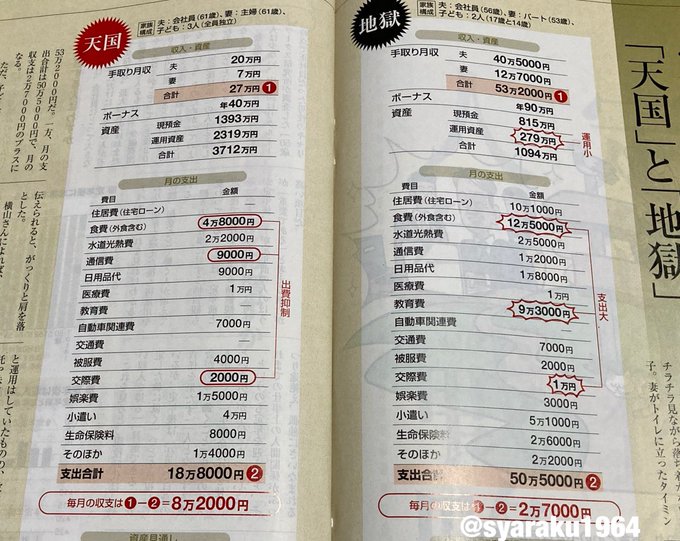 天国
家族構成 夫：会社員(61歳)、妻：主婦(61歳)、
子ども：3人(全員独立)
収入・資産
手取り月収 夫 20万円
妻 7万円
合計 27万円❶
ボーナス 年40万円
資産 現預金 1393万円
運用資産 2319万円
合計 3712万円
月の支出
費目 金額
住居費(住宅ローン) —
食費(外食含む) 4万8000円
水道光熱費 2万2000円
通信費 9000円
日用品代 9000円
医療費 1万円
教育費 —
自動車関連費 7000円
交通費 —
被服費 4000円
交際費 2000円
娯楽費 1万5000円
小遣い 4万円
生命保険料 8000円
そのほか 1万4000円
支出合計 18万8000円❷
出費抑制
毎月の収支は❶−❷=8万2000円
資産見通し
53万2000円だ。一方、月の支
出合計は50万5000円で、月の
収支は2万7000円のプラスに
なる。
伝えられると、がっくりと肩を落
とした。
横山さんによれば、
と運用はしていたものの、
地獄
家族構成 夫：会社員(56歳)、妻：パート(53歳)、
子ども：2人(17歳と14歳)
収入・資産
手取り月収 夫 40万5000円
妻 12万7000円
合計 53万2000円❶
ボーナス 年90万円
資産 現預金 815万円
運用資産 279万円
合計 1094万円
運用小
月の支出
費目 金額
住居費(住宅ローン) 10万1000円
食費(外食含む) 12万5000円
水道光熱費 2万5000円
通信費 1万2000円
日用品代 1万8000円
医療費 1万円
教育費 9万3000円
自動車関連費
交通費 7000円
被服費 2000円
交際費 1万円
娯楽費 3000円
小遣い 5万1000円
生命保険料 2万6000円
そのほか 2万2000円
支出合計 50万5000円❷
支出大
毎月の収支は❶−❷=2万7000円
「天国」と「地獄」
チラチラ見ながら落ち着
子。妻がトイレに立ったタイミン
@syaraku1964